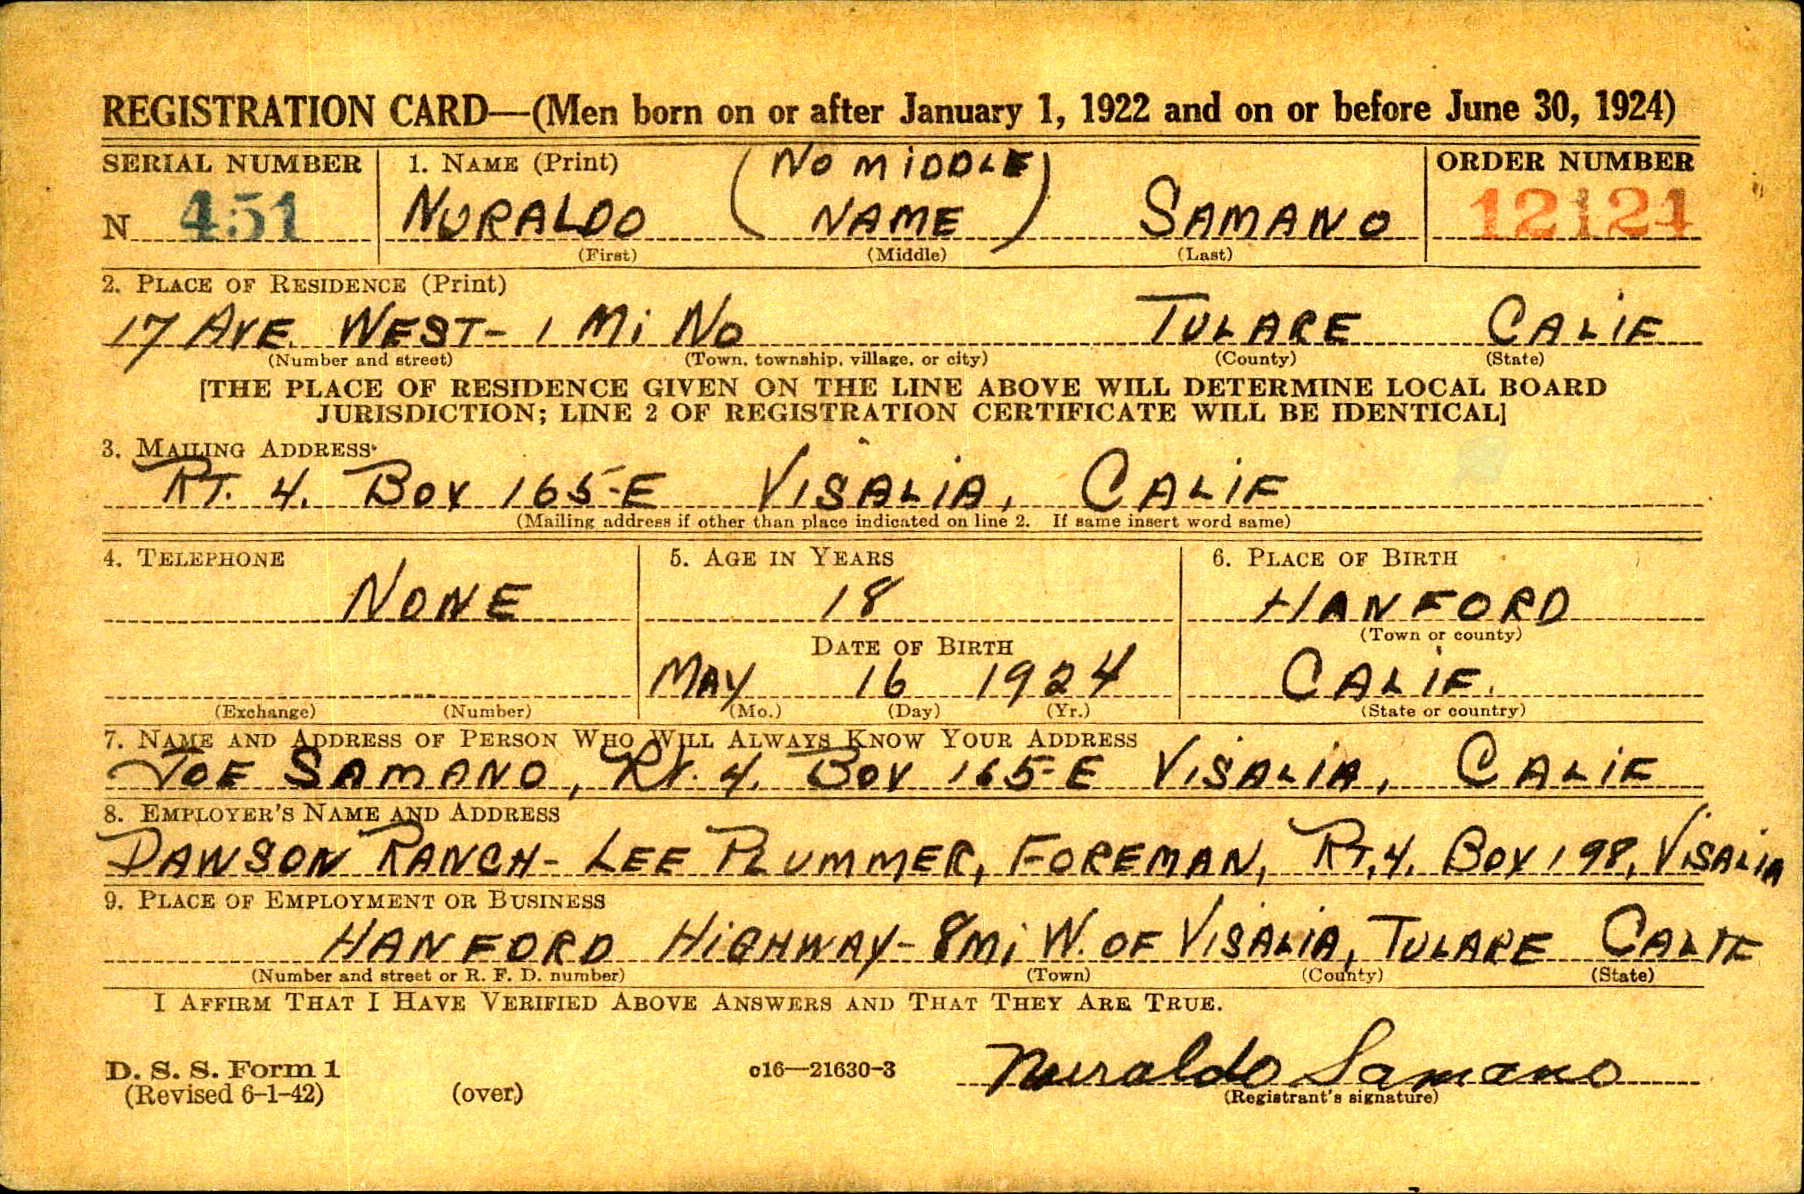 REGISTRATION CARD—(Men born on or after January 1, 1922 and on or before June 30, 1924)
SERIAL NUMBER 1. NAME (Print) (NO MIDDLE ORDER NUMBER
N 451 NURALDO NAME) SAMANO 12124
(First) (Middle) (Last)
2. PLACE OF RESIDENCE (Print)
17 AVE. WEST- 1 Mi NO TULARE CALIF
(Number and street) (Town, township, village, or city) (County) (State)
[THE PLACE OF RESIDENCE GIVEN ON THE LINE ABOVE WILL DETERMINE LOCAL BOARD
JURISDICTION; LINE 2 OF REGISTRATION CERTIFICATE WILL BE IDENTICAL]
3. MAILING ADDRESS
RT. 4. BOX 165-E VISALIA, CALIF
(Mailing address if other than place indicated on line 2. If same insert word same)
4. TELEPHONE 5. AGE IN YEARS 6. PLACE OF BIRTH
NONE 18 HANFORD
(Town or county)
DATE OF BIRTH
MAY 16 1924 CALIF.
(Exchange) (Number) (Mo.) (Day) (Yr.) (State or country)
7. NAME AND ADDRESS OF PERSON WHO WILL ALWAYS KNOW YOUR ADDRESS
JOE SAMANO, RT. 4. BOX 165-E VISALIA, CALIF
8. EMPLOYER'S NAME AND ADDRESS
DAWSON RANCH- LEE PLUMMER, FOREMAN, RT. 4. BOX 198, VISALIA
9. PLACE OF EMPLOYMENT OR BUSINESS
HANFORD HIGHWAY- 8 Mi W. OF VISALIA, TULARE CALIF
(Number and street or R. F. D. number) (Town) (County) (State)
I AFFIRM THAT I HAVE VERIFIED ABOVE ANSWERS AND THAT THEY ARE TRUE.
D. S. S. Form 1 c16—21630-3 Nuraldo Samano
(Revised 6-1-42) (over) (Registrant's signature)